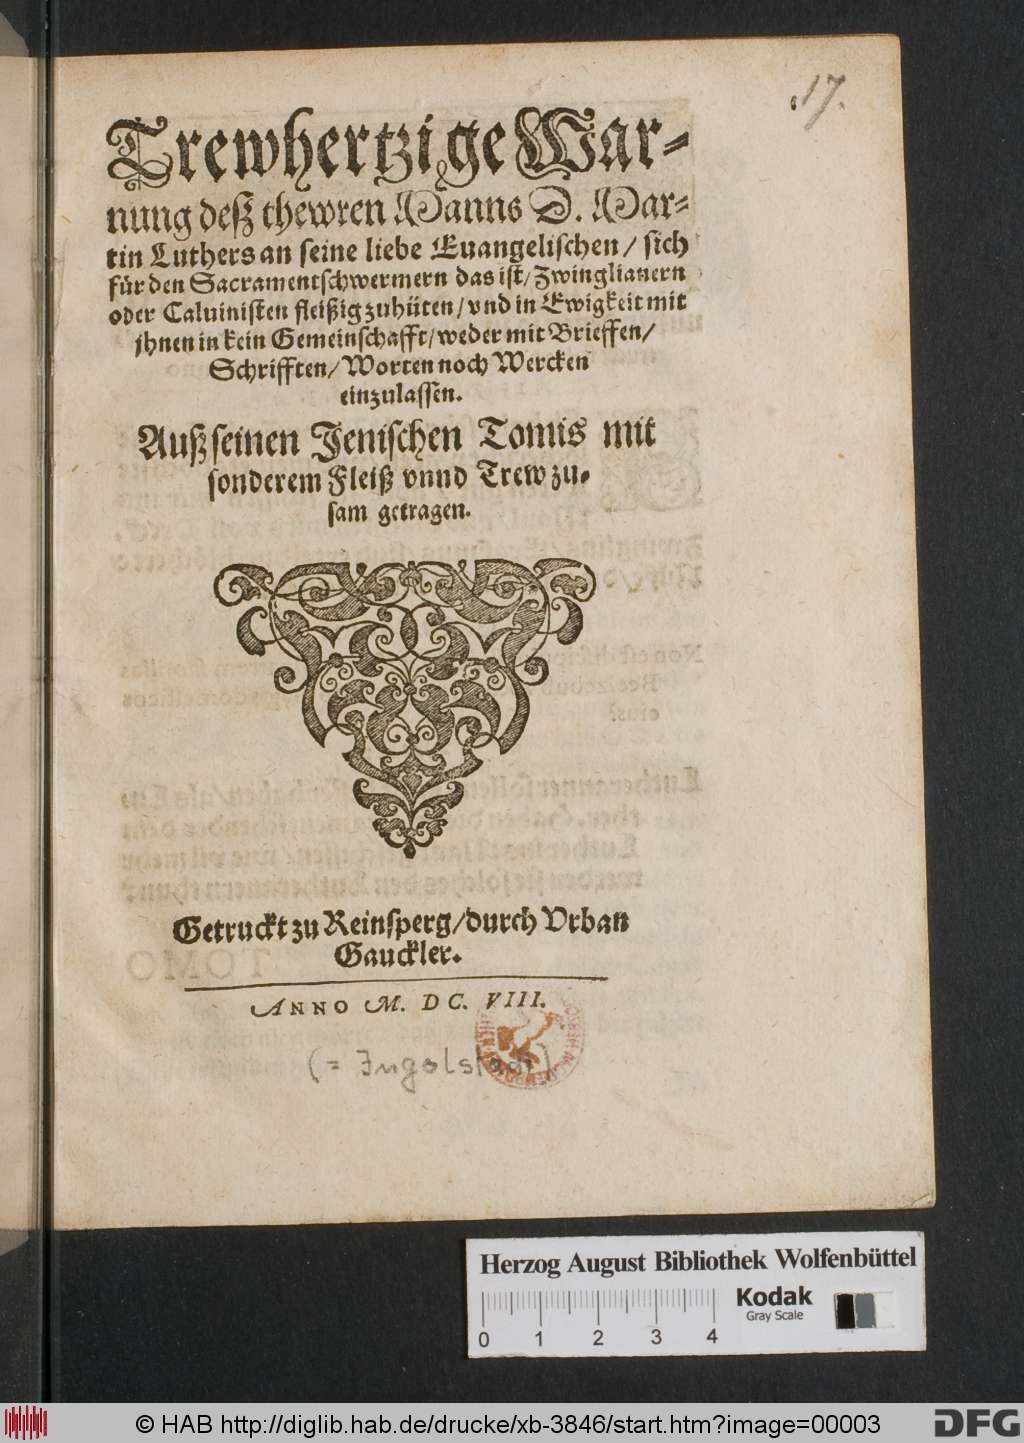 17.
Trewhertzige War-
nung deß thewren Manns D. Mar-
tin Luthers an seine liebe Euangelischen / sich
für den Sacramentschwermern das ist / Zwinglianern
oder Caluinisten fleißig zuhüten / vnd in Ewigkeit mit
jhnen in kein Gemeinschafft / weder mit Brieffen /
Schrifften / Worten noch Wercken
einzulassen.
Auß seinen Jenischen Tomis mit
sonderem Fleiß vnnd Trew zu-
sam getragen.
Getruckt zu Reinsperg / durch Vrban
Gauckler.
ANNO M. DC. VIII.
(= Ingolstadt)
Herzog August Bibliothek Wolfenbüttel
Kodak
Gray Scale
0 1 2 3 4
© HAB http://diglib.hab.de/drucke/xb-3846/start.htm?image=00003
DFG